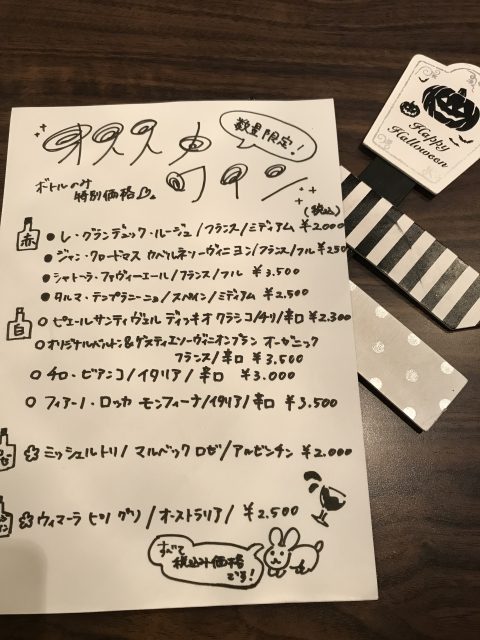 オススメ
数量限定!
ワイン
ボトルのみ
特別価格
(税込)
赤
● レ・グランデュック・ルージュ/フランス/ミディアム ¥2,000
● ジャン・クロードマス カベルネソーヴィニヨン/フランス/フル ¥250
● シャトーラ・ファヴィエール/フランス/フル ¥3,500
● タルマ・テンプラニーニョ/スペイン/ミディアム ¥2,500
白
○ ピエールサンティ ヴェルディッキオ クラシコ/チリ/辛口 ¥2,300
○ オリジナルベルトン&ゲスティエソーヴィニオンブラン オーガニック
フランス/辛口 ¥3,500
○ チロ・ビアンコ/イタリア/辛口 ¥3,000
○ フィアーノ・ロッカ モンフィーナ/イタリア/辛口 ¥3,500
ゼ
ミッシェルトリノ マルベック ロゼ/アルゼンチン ¥2,000
イン
ウィマーラ ピノ グリ/オーストラリア/ ¥2,500
すべて
税込み価格
です!
Happy
Halloween